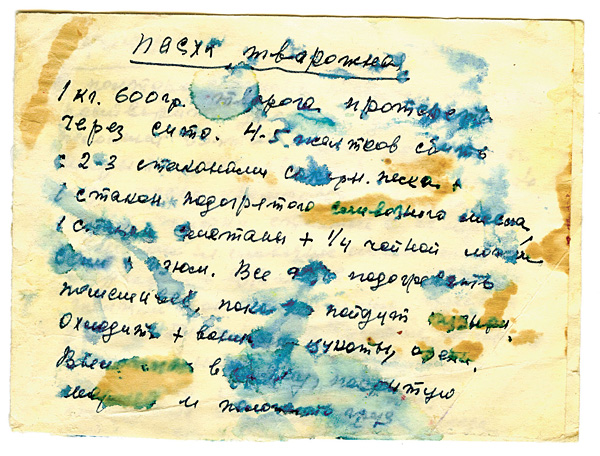 пасха творожная
1 кг. 600 гр. творога протереть
через сито. 4-5 желтков сбить
с 2-3 стаконами сахарн. песка +
1 стакон подогрятого сливозного масла
1 стакан сметаны + 1/4 чайной ложки
соли + изюм. Все подогревать
помешивая, пока не пойдут пузыри.
Охладить + ванил цукаты, орехи.
в форму, покрытую
марлей и положить груз